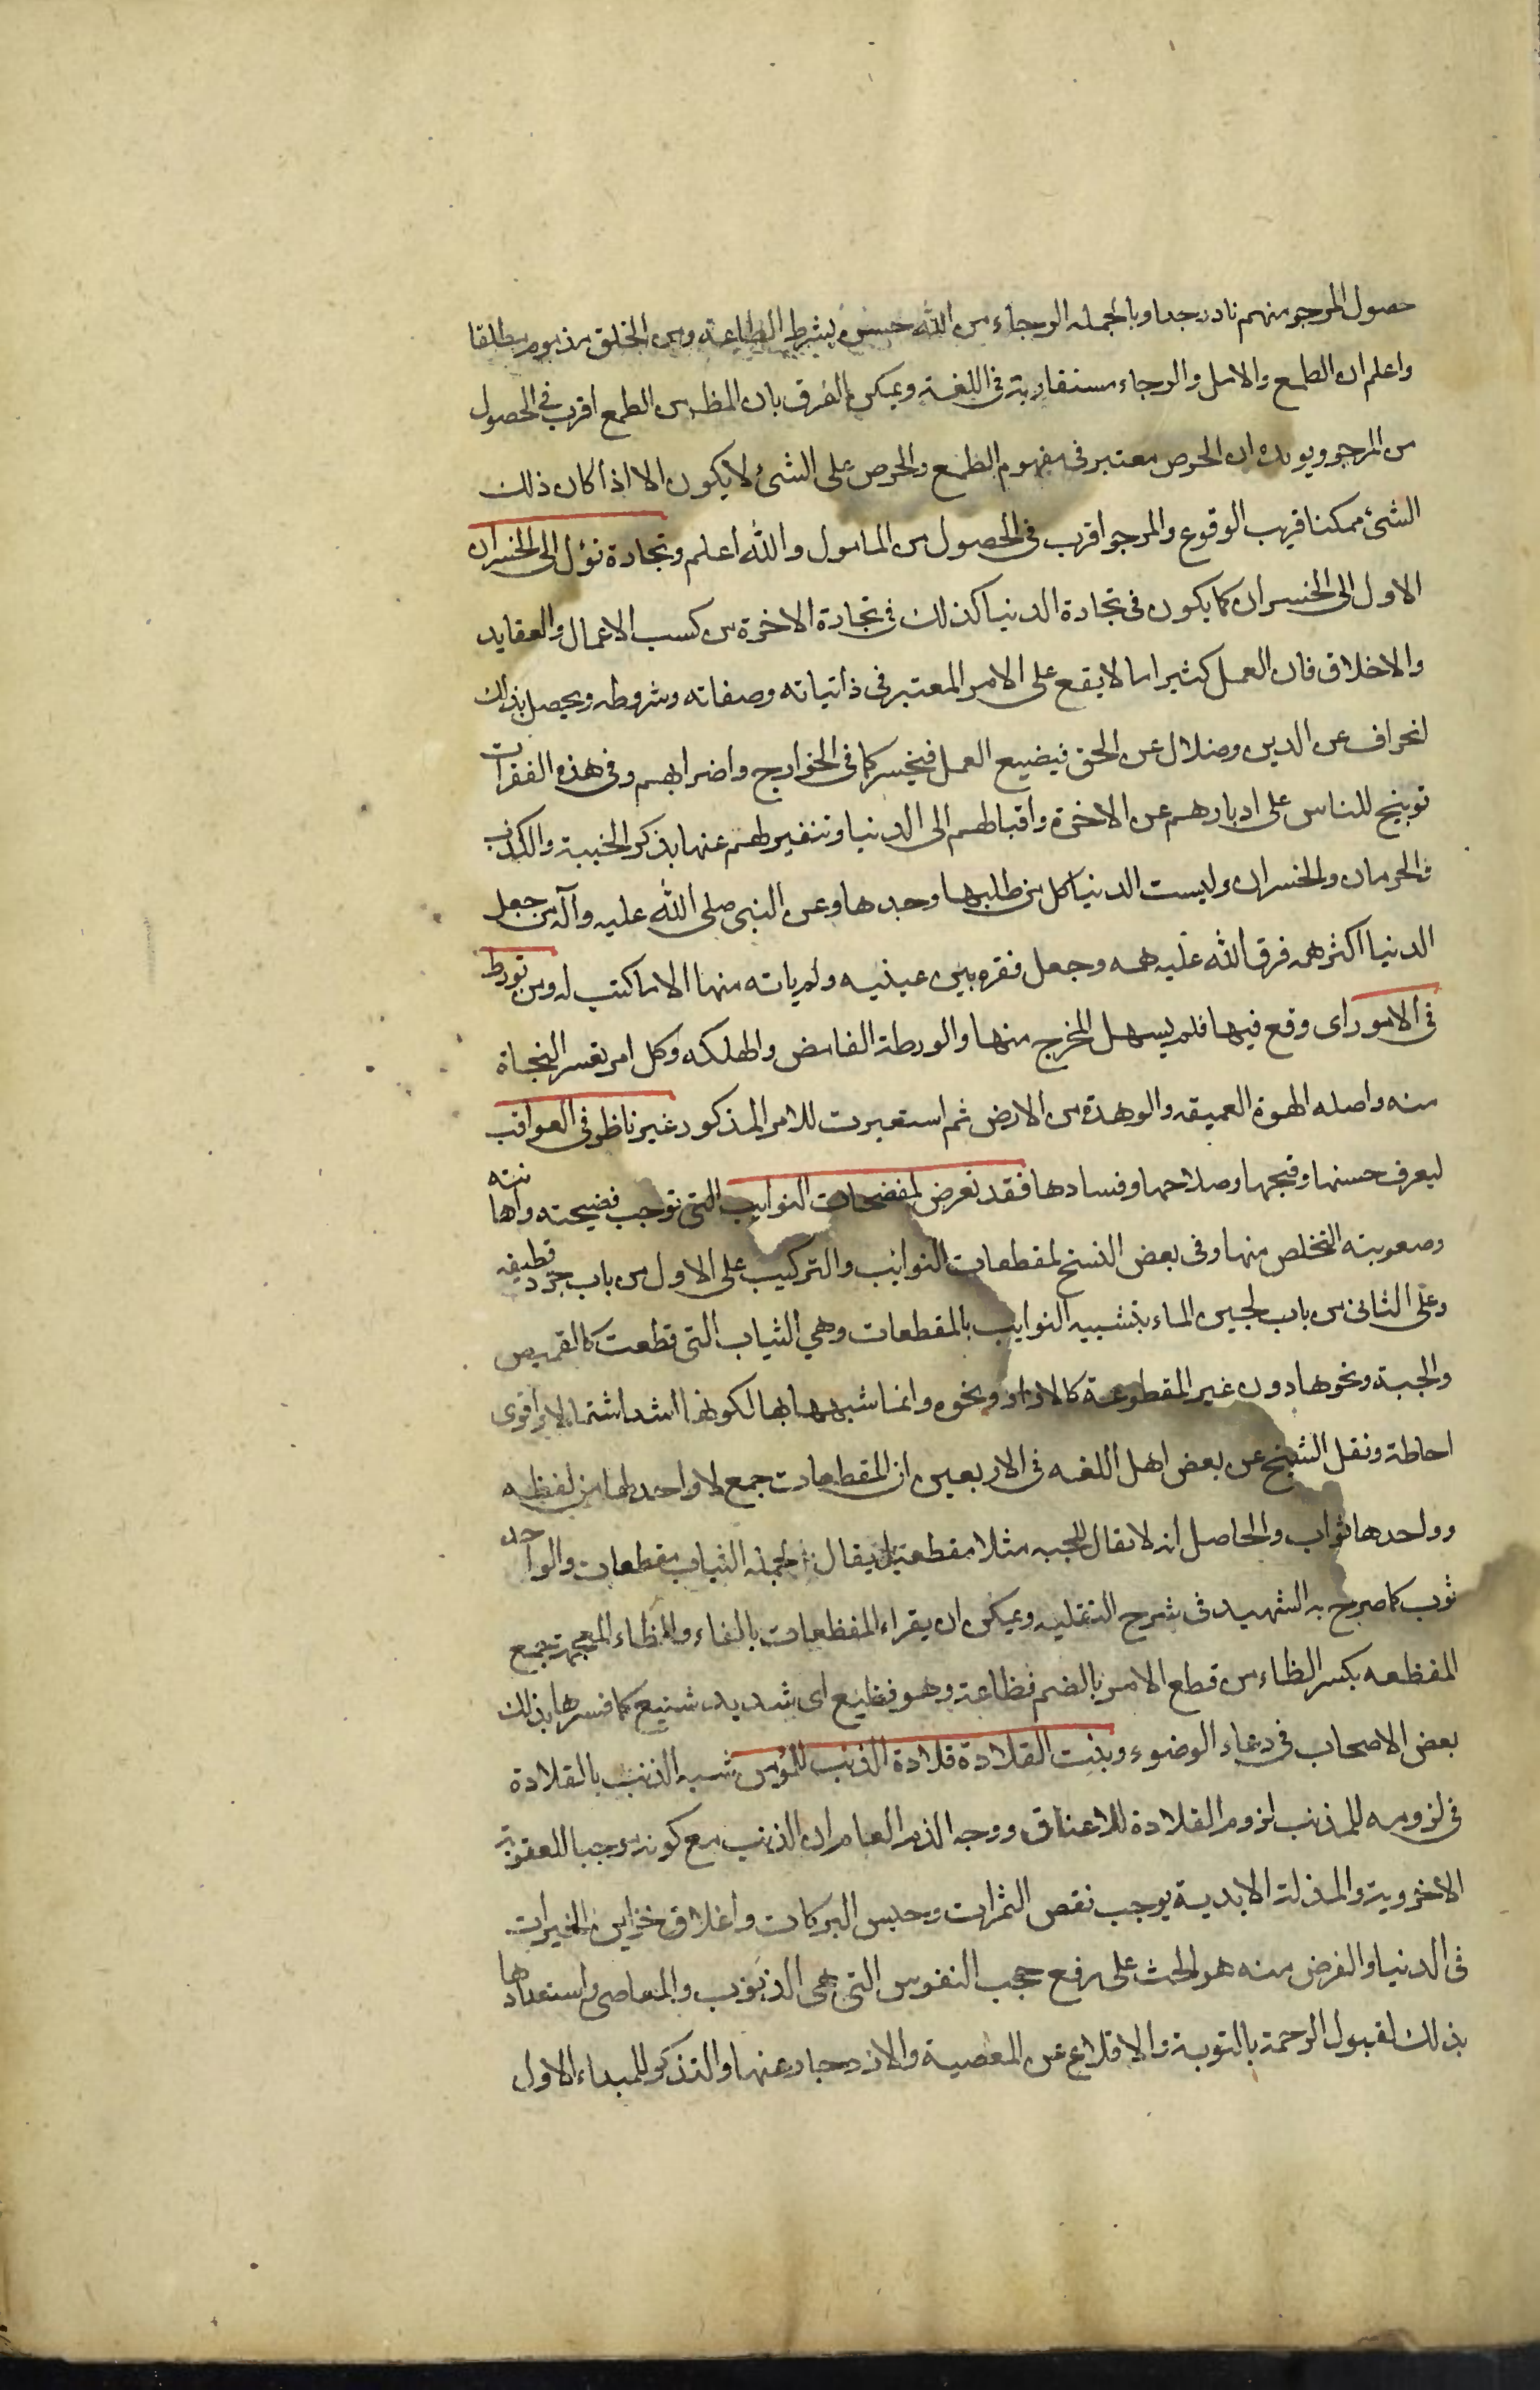 حصول المرجو منهم نادر جدا وبالجمله الرجاء من الله حسن بشرط الطاعة ومن الخلق مذموم مطلقا
واعلم ان الطمع والامل والرجاء مستقاربة في اللغة ويمكن الفرق بان المظ من الطمع اقرب في الحصول
من المرجو ويويده ان الحرص معتبر في مفهوم الطمع والحرص على الشئ لا يكون الا اذا كان ذلك
الشئ ممكنا قريب الوقوع والمرجو اقرب في الحصول من المامول والله اعلم وتجارة تؤل الى الخسران
الاول الى الخسران كما يكون في تجارة الدنيا كذلك في تجارة الاخرة من كسب الاعمال والعقايد
والاخلاق فان العمل كثيرا ما لا يقع على الامر المعتبر في ذاتياته وصفاته وشروطه ويحصل بذلك
انحراف عن الدين وضلال عن الحق فيضيع العمل فيخسر كما في الخوارج واضرابهم وفي هذه الفقرات
توبيخ للناس على ادبارهم عن الاخرة واقبالهم الى الدنيا وتنفير لهم عنها بذكر الخيبة والكذب
والحرمان والخسران وليست الدنيا كل من طلبها وجدها وعن النبي صلى الله عليه وآله من جعل
الدنيا اكثر همه فرق الله عليه همه وجعل فقره بين عينيه ولم ياته منها الا ما كتب له ومن تورط
في الامور اى وقع فيها فلم يسهل المخرج منها والورطة الغامض والهلكه وكل امر تعسر النجاة
منه واصله الهوة العميقه والوهدة من الارض ثم استعيرت للامر المذكور غير ناظر في العواقب
ليعرف حسنها وقبحها وصلاحها وفسادها فقد تعرض لمفضحات النوايب التى توجب فضيحته واهانته
وصعوبته التخلص منها وفى بعض النسخ لمقطعات النوايب والتركيب على الاول من باب جرد قطيفه
وعلى الثانى من باب لجين الماء بتشبيه النوايب بالمقطعات وهي الثياب التى قطعت كالقميص
والجبة ونحوها دون غير المقطوعة كالازار ونحوه وانما شبهها بها لكونها اشد اشتمالا واقوى
احاطة ونقل الشيخ عن بعض اهل اللغه في الاربعين ان المقطعات جمع لا واحد لها من لفظه
وواحدها ثواب والحاصل انه لا يقال للجبه مثلا مقطعة بل يقال لجملة الثياب مقطعات والواحد
ثوب كما صرح به الشهيد في شرح النفليه ويمكن ان يقراء المفظعات بالفاء والظاء المعجمة جمع
المفظعه بكسر الظاء من قطع الامر بالضم فظاعة وهو فظيع اى شديد شنيع كما فسرها بذلك
بعض الاصحاب في دعاء الوضوء وبئست القلادة قلادة الذنب للمؤمن شبه الذنب بالقلادة
في لزومه للمذنب لزوم القلادة للاعناق ووجه الذم العام ان الذنب مع كونه موجبا للعقوبة
الاخروية والمذلة الابدية يوجب نقص الثمرات وحبس البركات واغلاق خزاين الخيرات
في الدنيا والغرض منه هو الحث على رفع حجب النفوس التى هى الذنوب والمعاصى واستعدادها
بذلك لقبول الرحمة بالتوبة والاقلاع عن المعصية والازدجار عنها والتذكر للمبداء الاول